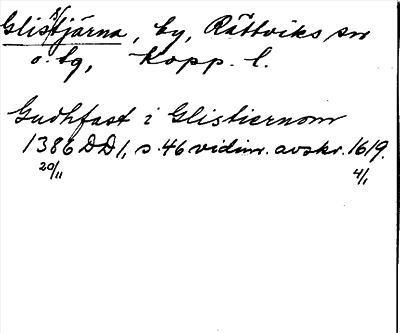 Glistjärna, by, Rättviks sn
o. tg, Kopp. l.
Gudhfast i Glistiernom
1386 DD 1, s. 46 vidim. avskr. 1619.
20/11 4/1